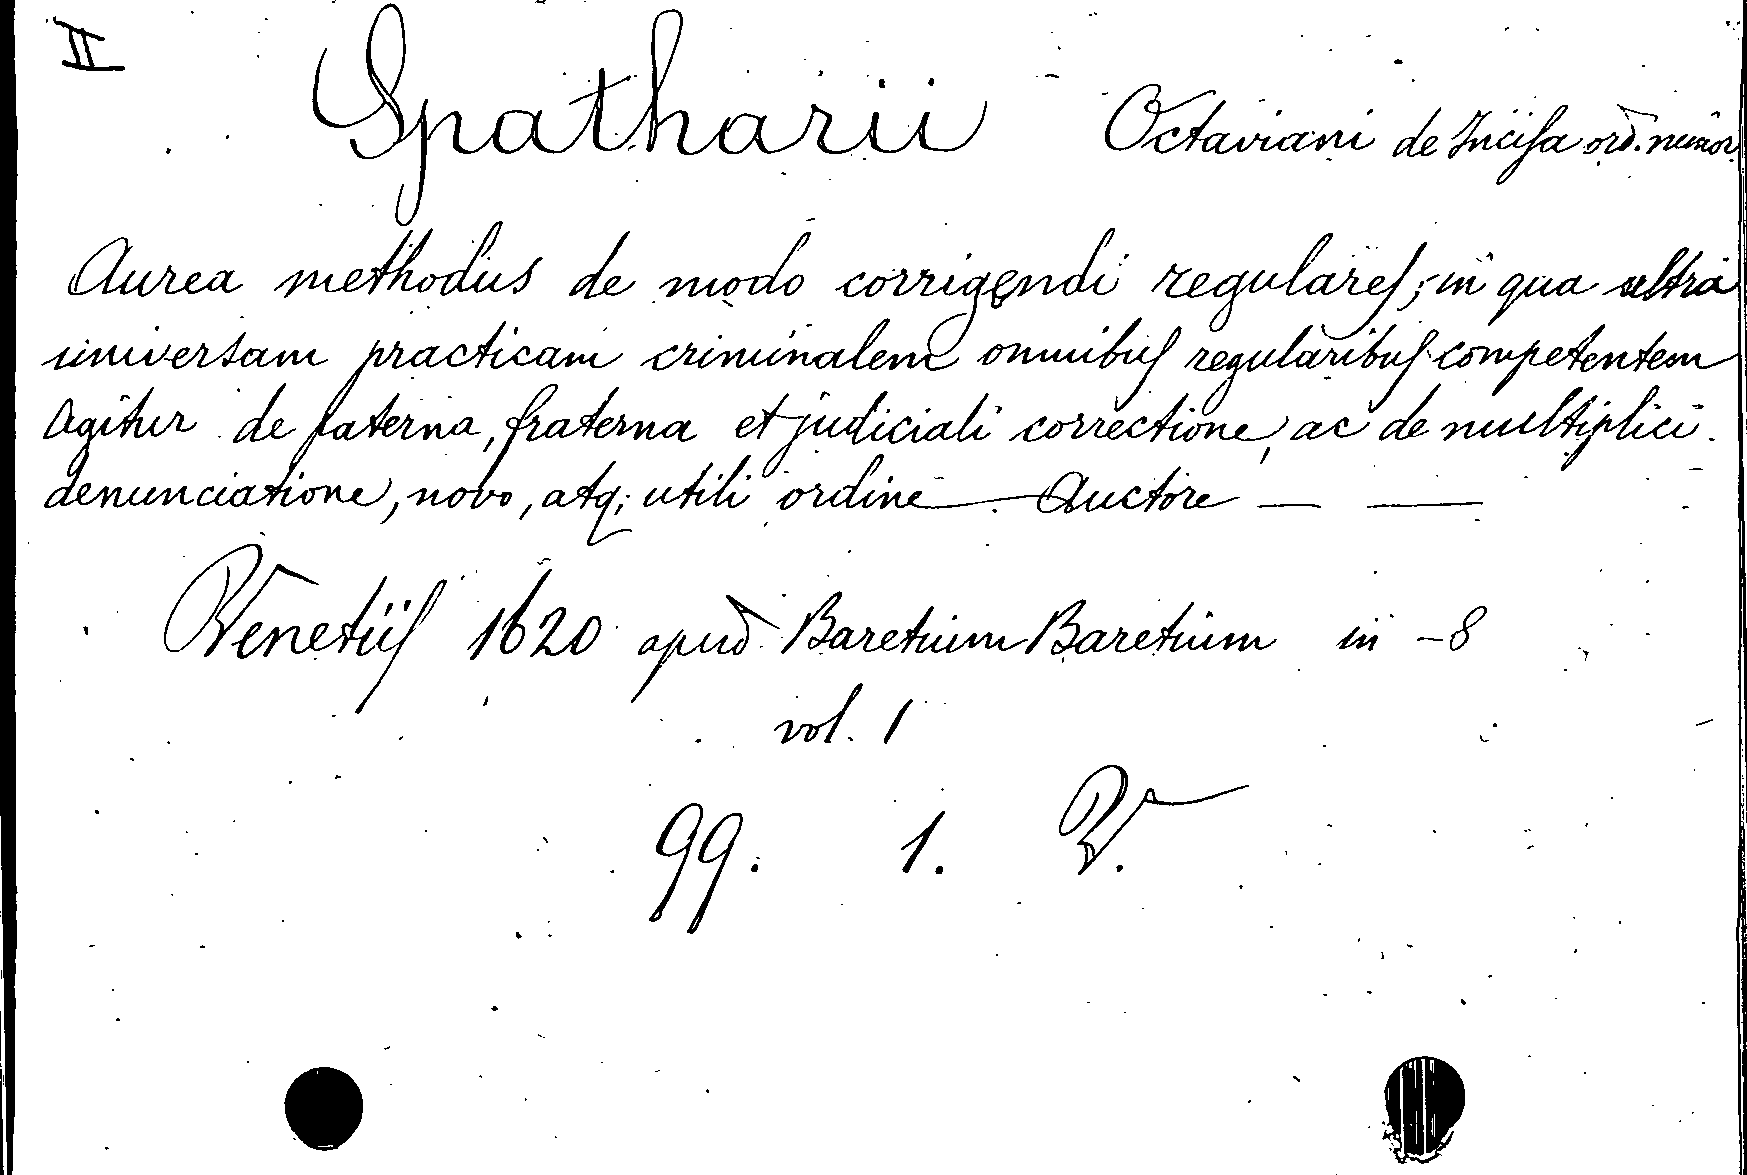 II
Spatharii Octaviani de Incisa ord. minor.
Aurea methodus de modo corrigendi regulares; in qua ultra
universam practicam criminalem omnibus regularibus competentem
Agitur de paterna, fraterna et judiciali correctione, ac de multiplici
denunciatione, novo, atq; utili ordine — Auctore — —
Venetiis 1620 apud Baretium Baretium in -8
vol. 1
99. 1. V.